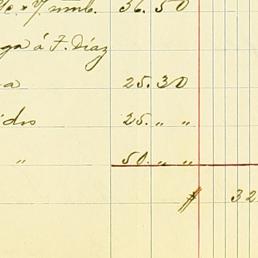 36.50
ga á F. Díaz
a 25.30
idos 25. " "
" 50. " "
$ 32